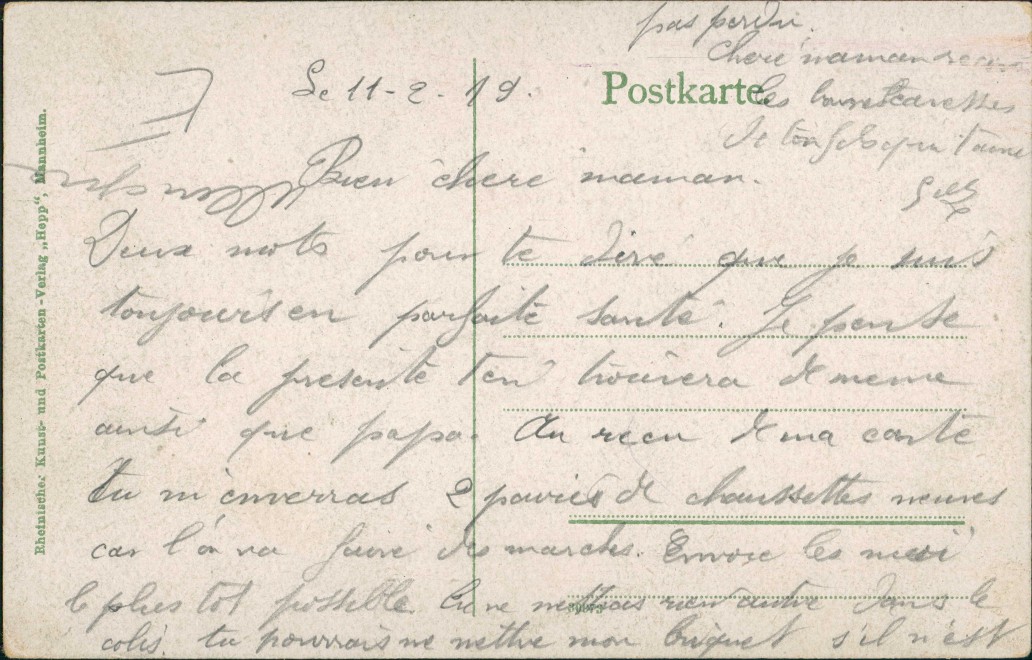 Le 11-2-19.
Postkarte
Bien chere maman.
Deux mots pour te dire que je suis
toujours en parfaite santé. Je pense
que la presente t'en trouvera de meme
ainsi que papa. Au recu de ma carte
tu m'enverras 2 paires de chaussettes neuves
car l'on va faire des marches. Envoie les moi
le plus tot possible tu ne mettras rien autre dans le
colis. tu pourrais me mettre mon briquet s'il n'est
pas perdu.
Chere maman
les caresses
de ton fils qui t'aime
Rheinische Kunst- und Postkarten-Verlag „Hepp“, Mannheim.